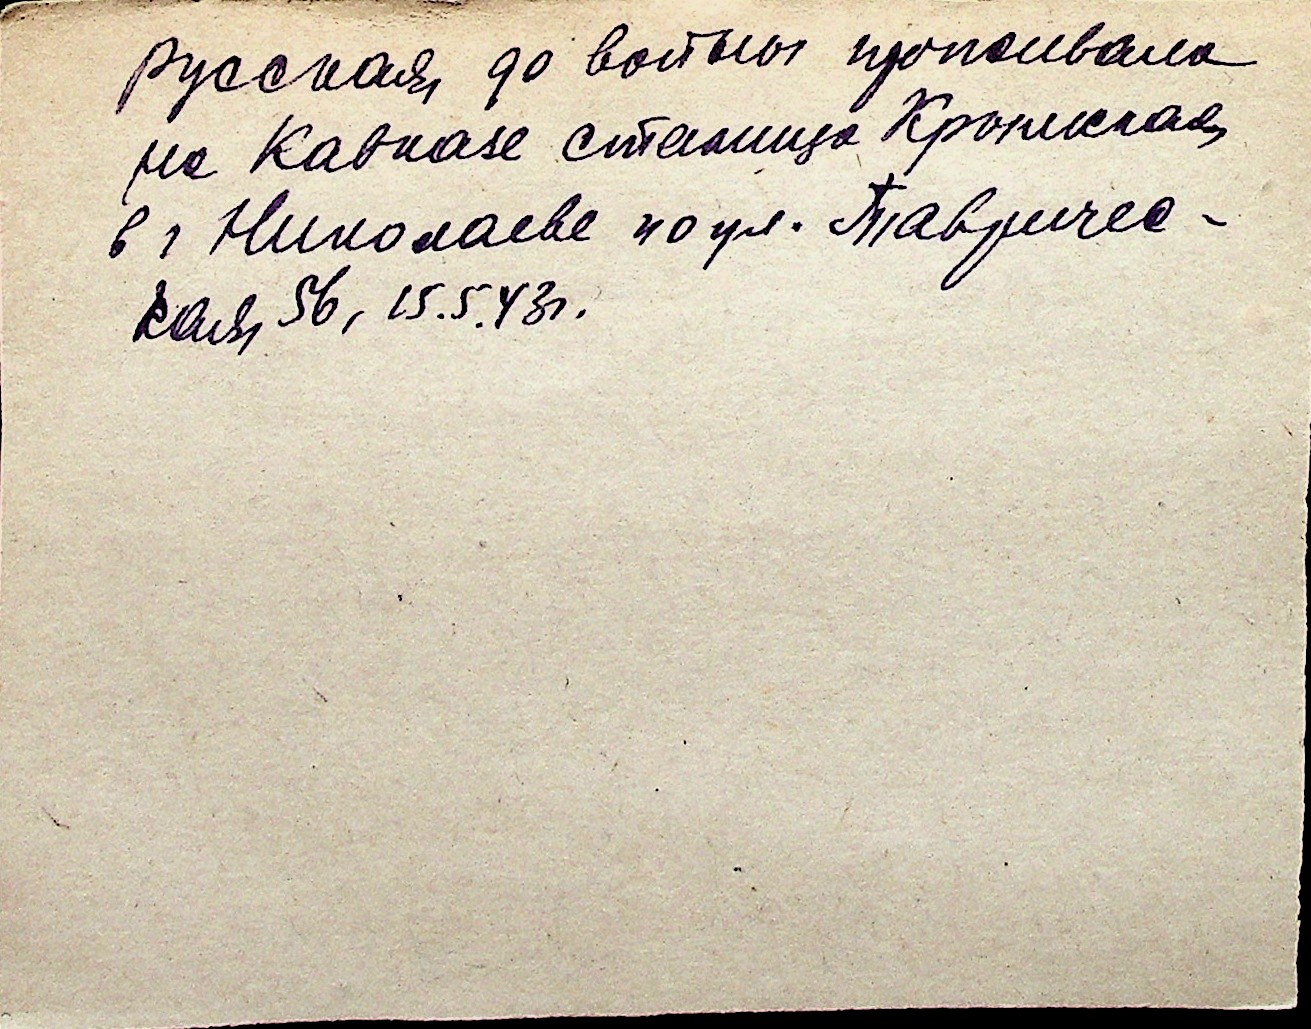 Русская, до войны проживала
на Кавказе станица Крымская,
в г Николаеве по ул. Тавричес-
кая, 56, 15.5.43г.